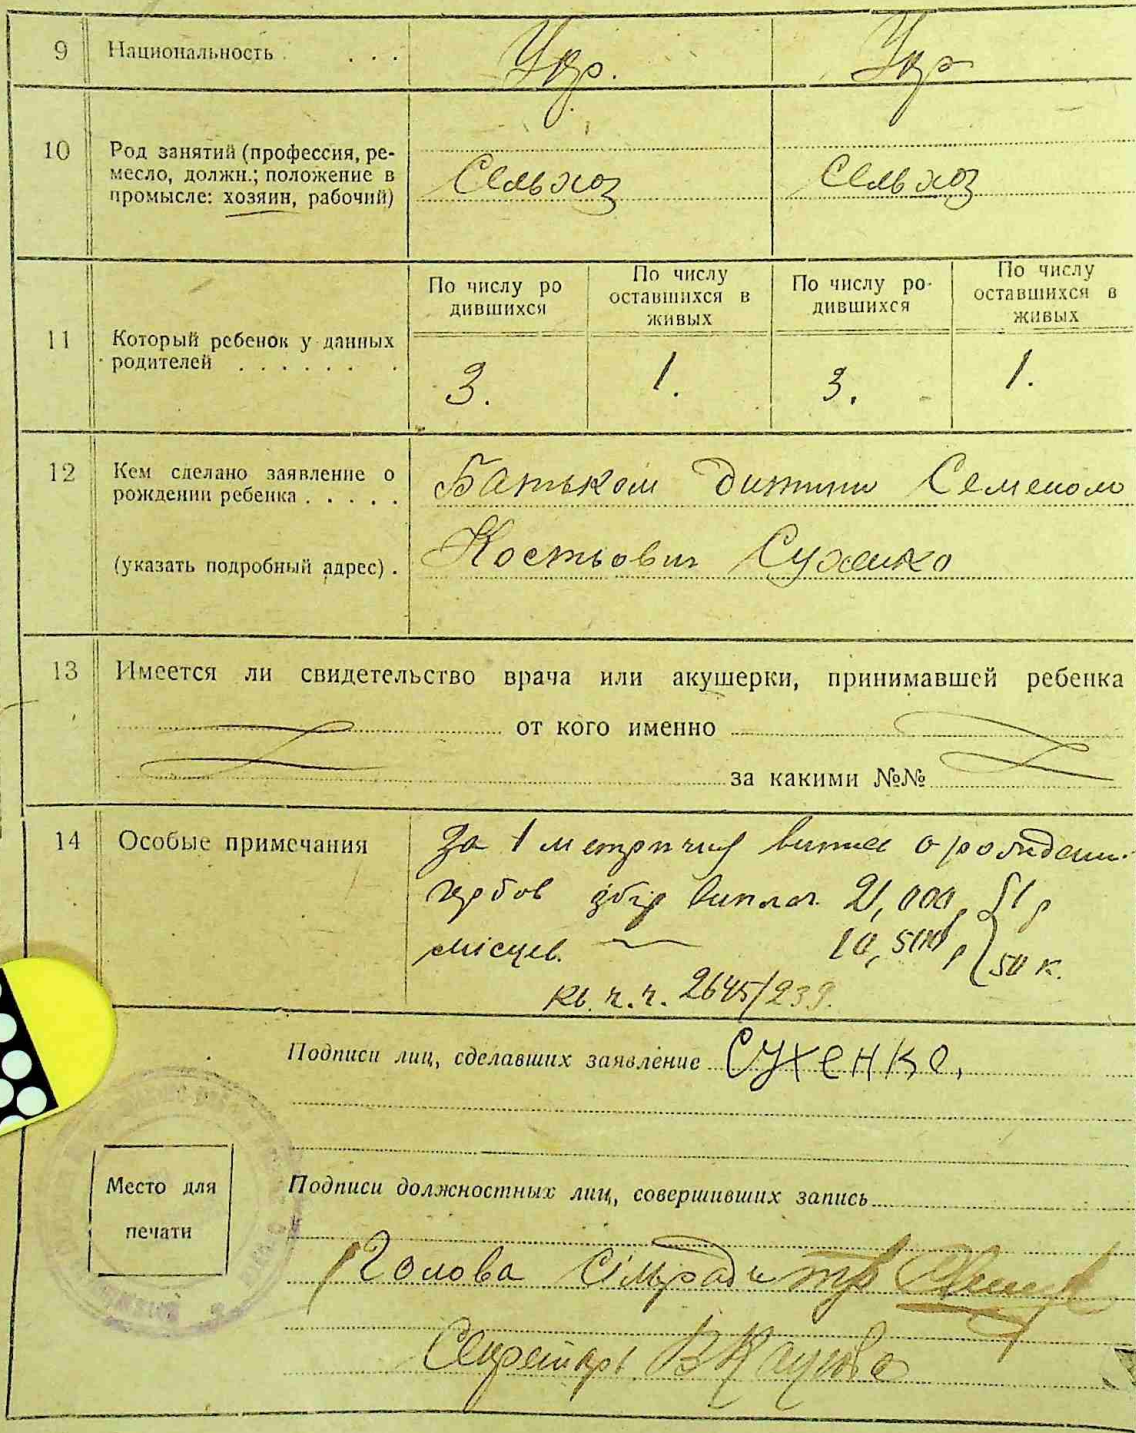 9 Национальность . . . . Укр. Укр
10 Род занятий (профессия, ре-
месло, должн.; положение в
промысле: хозяин, рабочий)
Сельхоз Сельхоз
По числу ро
дившихся
По числу
оставшихся в
живых
По числу ро-
дившихся
По числу
оставшихся в
живых
11 Который ребенок у данных
родителей . . . . . . .
3. 1. 3. 1.
12 Кем сделано заявление о
рождении ребенка . . . . .
Батьком дитини Семеном
(указать подробный адрес) .
Костьович Сухенко
13 Имеется ли свидетельство врача или акушерки, принимавшей ребенка
от кого именно
за какими №№
14 Особые примечания
За 1 метричну випис о рождении
гербов збір виплач. 21,000 р 1 р
місцев. 10,500 р 50 к.
кв. ч. ч. 2645/239.
Подписи лиц, сделавших заявление Сухенко,
Место для
печати
Подписи должностных лиц, совершивших запись
Голова Сільради
Секретарь